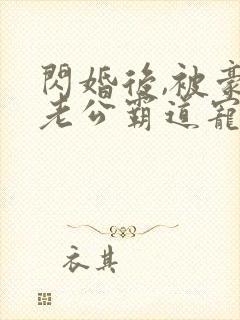 閃婚後,被豪
老公霸道寵
衣其